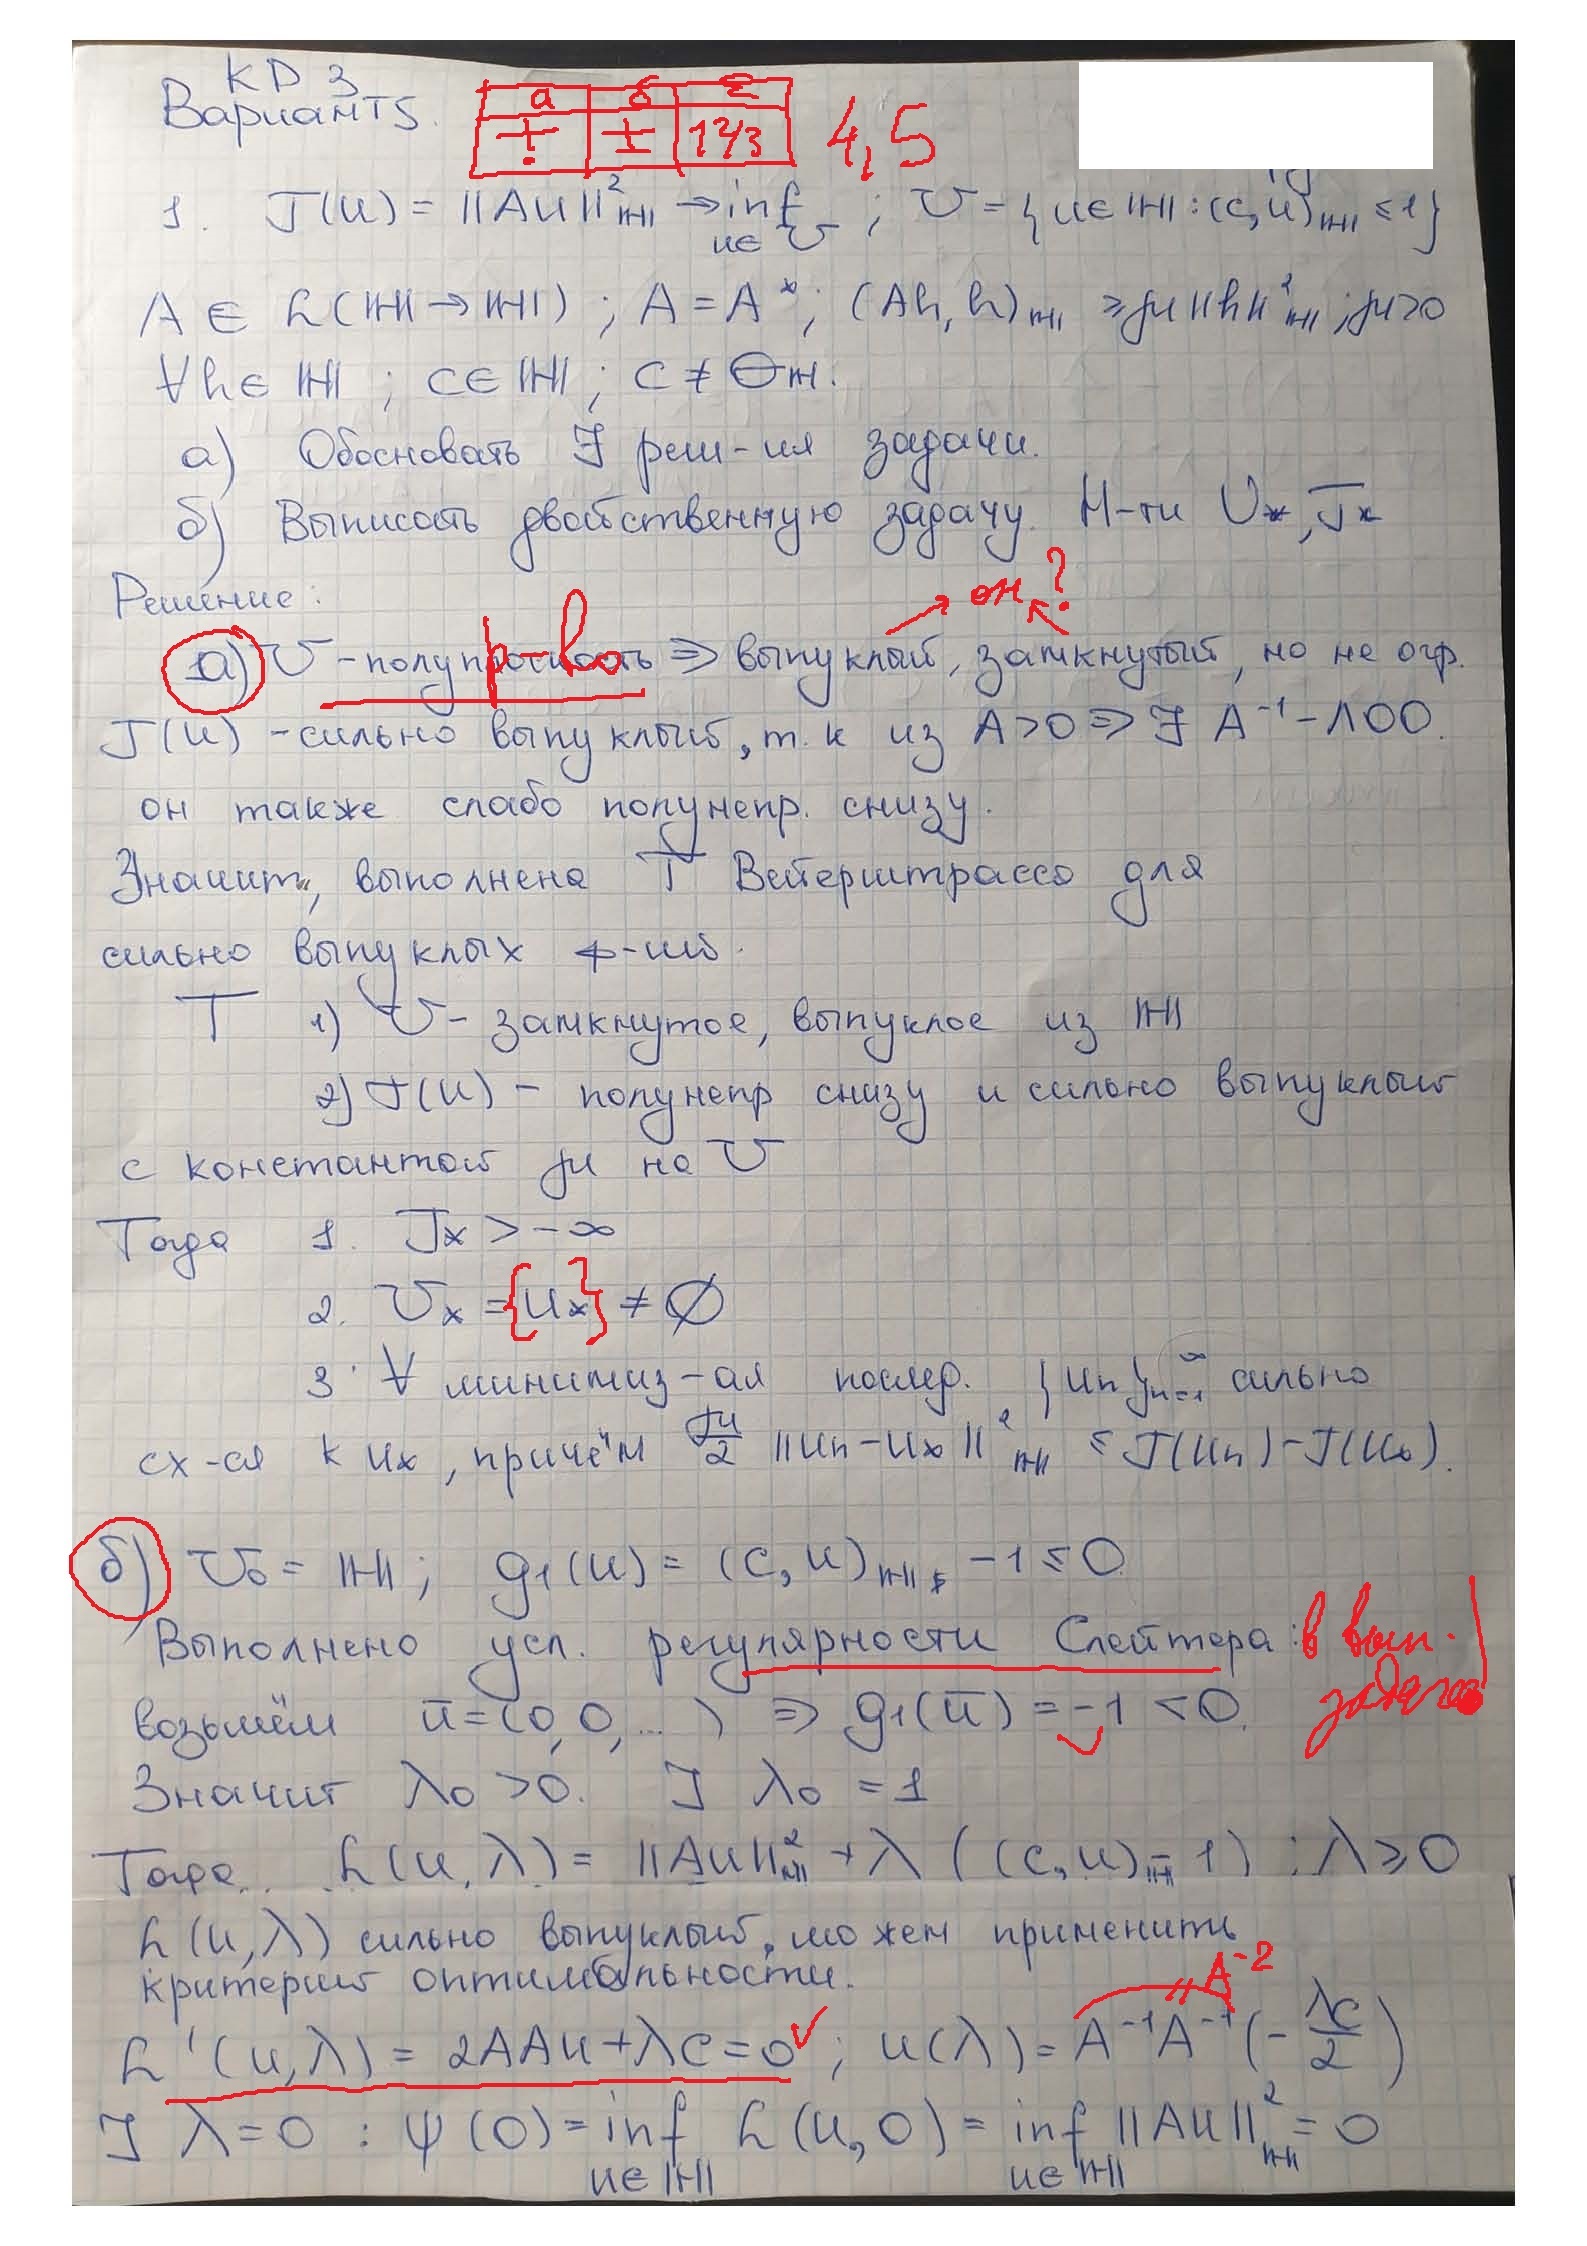 КР 3
Вариант 5.
а б Σ
± ± 1 2/3 4,5
1. J(u) = ||Au||²_ℍ → inf u∈U ; U = {u∈ℍ : (c,u)_ℍ ≤ 1}
A ∈ L(ℍ→ℍ) ; A = A* ; (Ah, h)_ℍ ≥ μ||h||²_ℍ ; μ>0
∀h∈ℍ ; c∈ℍ ; c ≠ Θ_ℍ.
а) Обосновать ∃ реш-ия задачи.
б) Выписать двойственную задачу. Н-ти U*, J*
он ?
Решение:
а) U - полупр-во ⇒ выпуклый, замкнутый, но не огр.
J(u) - сильно выпуклый, т.к из A>0 ⇒ ∃ A⁻¹ - ЛОО.
он также слабо полунепр. снизу.
Значит, выполнена Т Вейерштрасса для
сильно выпуклых ф-ий.
Т 1) U - замкнутое, выпуклое из ℍ
2) J(u) - полунепр снизу и сильно выпуклый
с константой μ на U
Тогда 1. J* > -∞
2. U* = {u*} ≠ ∅
3. ∀ минимиз-ая послед. {un}_{n=1}^∞ сильно
сх-ся к u*, причём μ/2 ||un - u*||²_ℍ ≤ J(un) - J(u*).
б) U₀ = ℍ; g₁(u) = (c, u)_ℍ - 1 ≤ 0
Выполнено усл. регулярности Слейтера: в вып. задаче!
возьмём ū = (0, 0, ...) ⇒ g₁(ū) = -1 < 0.
Значит λ₀ > 0. ∃ λ₀ = 1
Тогда L(u, λ) = ||Au||²_ℍ + λ((c, u)_ℍ - 1) ; λ ≥ 0
L(u, λ) сильно выпуклый, можем применить
критерий оптимальности.
= A⁻²
L'(u, λ) = 2AAu + λc = 0 ✓ ; u(λ) = A⁻¹A⁻¹(-λc/2)
∃ λ = 0 : ψ(0) = inf u∈ℍ L(u, 0) = inf u∈ℍ ||Au||²_ℍ = 0